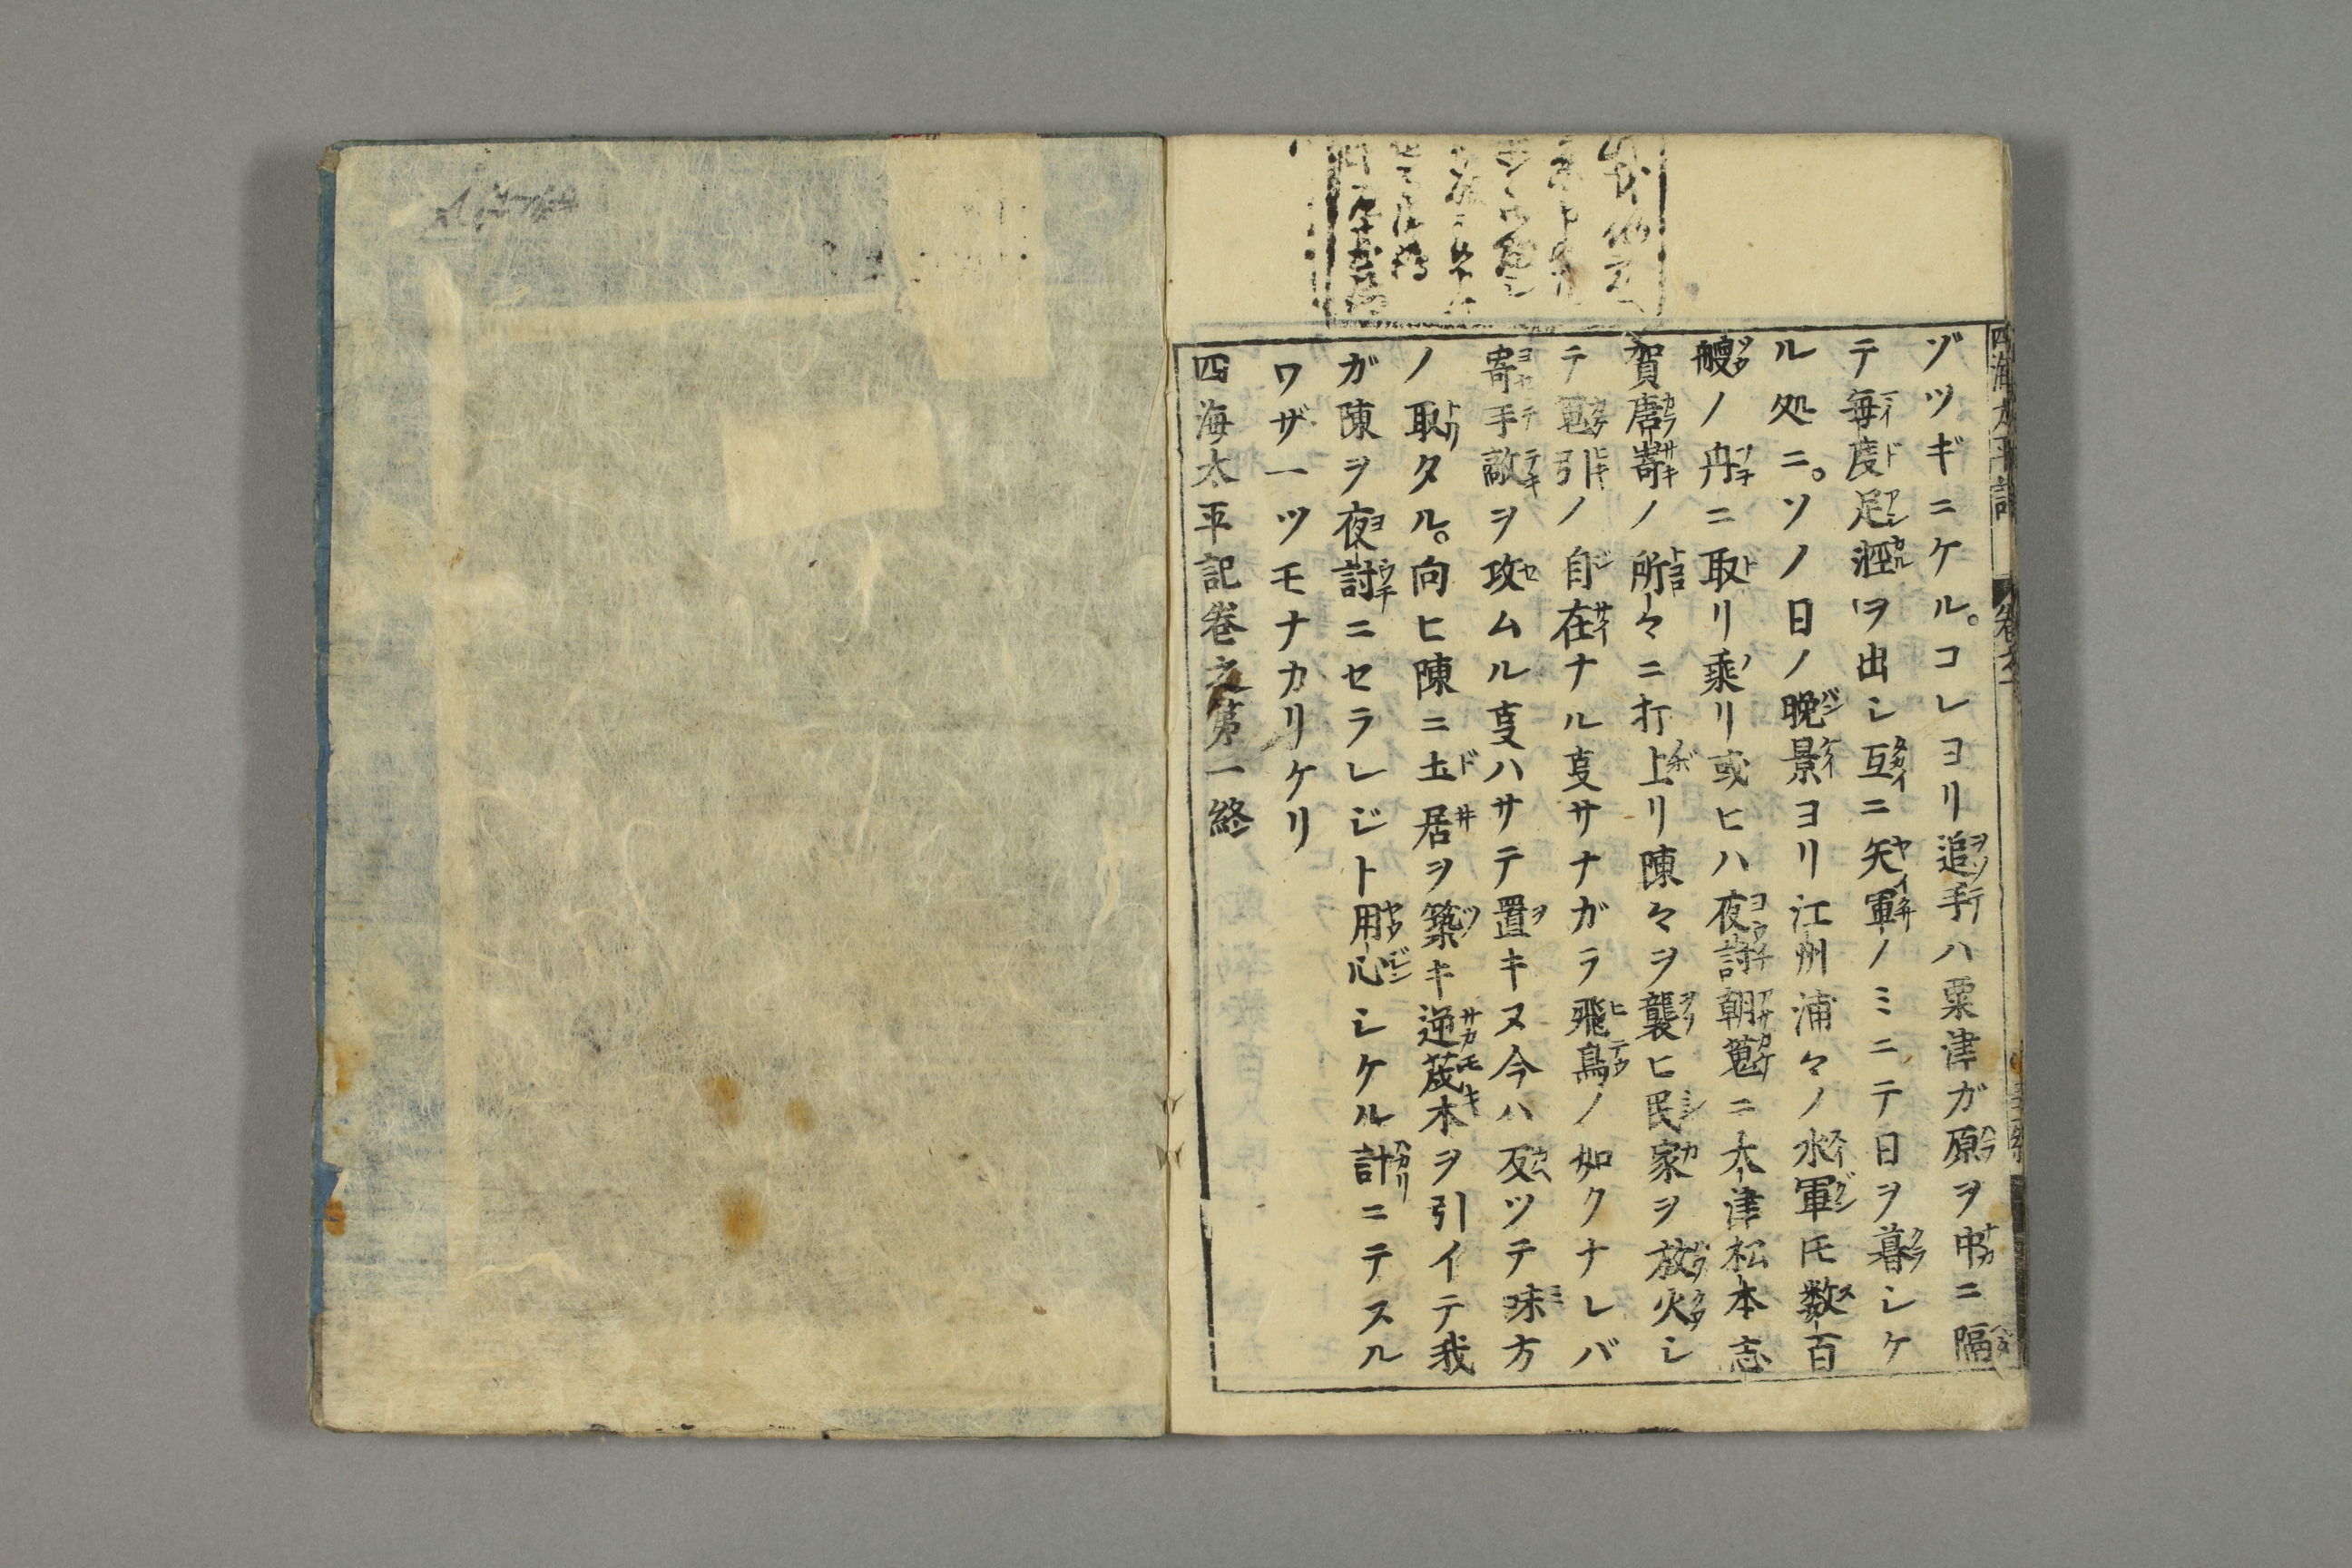 四海太平記 卷之一
ゾツギニケル。コレヨリ追手ハ粟津ガ原ヲ中ニ隔
テ毎度足軽ヲ出シ互ニ矢軍ノミニテ日ヲ暮シケ
ル処ニ。ソノ日ノ晩景ヨリ江州浦々ノ水軍𪜈数百
艘ノ舟ニ取リ乗リ或ヒハ夜討朝蒐ニ大津松本志
賀唐崎ノ所々ニ打上リ陳々ヲ襲ヒ民家ヲ放火シ
テ軍引ノ自在ナル𫝆サナガラ飛鳥ノ如クナレバ
寄手敵ヲ攻ムル𫝆ハサテ置キヌ今ハ反ツテ味方
ノ取タル。向ヒ陳ニ土居ヲ築キ逆茂木ヲ引イテ我
ガ陳ヲ夜討ニセラレジト用心シケル計ニテスル
ワザ一ツモナカリケリ
四海太平記卷之第一終